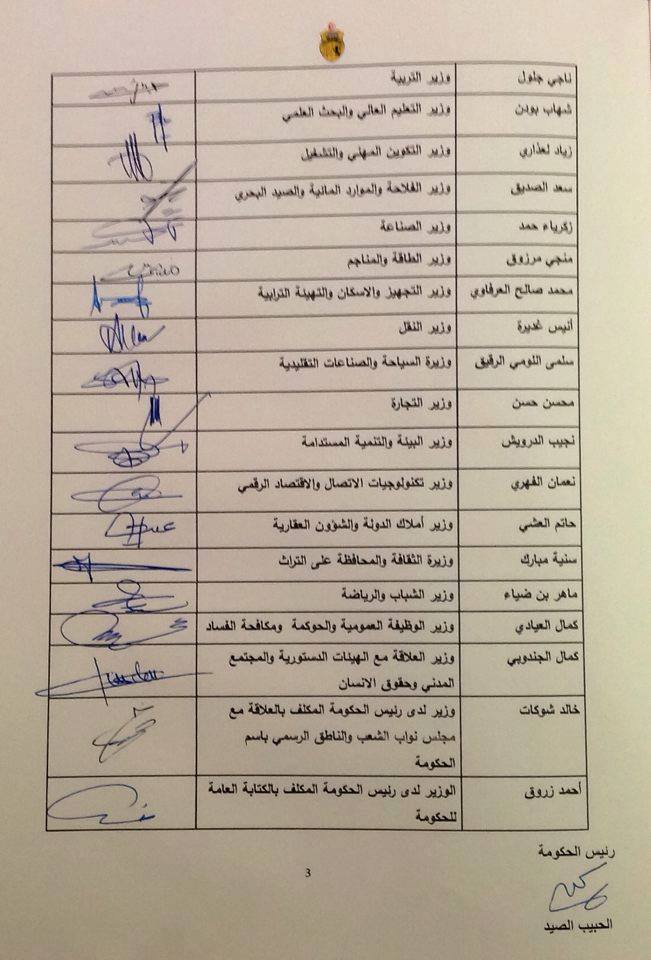 ناجي جلول وزير التربية
شهاب بودن وزير التعليم العالي والبحث العلمي
زياد لعذاري وزير التكوين المهني والتشغيل
سعد الصديق وزير الفلاحة والموارد المائية والصيد البحري
زكرياء حمد وزير الصناعة
منجي مرزوق وزير الطاقة والمناجم
محمد صالح العرفاوي وزير التجهيز والاسكان والتهيئة الترابية
أنيس غديرة وزير النقل
سلمى اللومي الرقيق وزيرة السياحة والصناعات التقليدية
محسن حسن وزير التجارة
نجيب الدرويش وزير البيئة والتنمية المستدامة
نعمان الفهري وزير تكنولوجيات الاتصال والاقتصاد الرقمي
حاتم العشي وزير أملاك الدولة والشؤون العقارية
سنية مبارك وزيرة الثقافة والمحافظة على التراث
ماهر بن ضياء وزير الشباب والرياضة
كمال العيادي وزير الوظيفة العمومية والحوكمة ومكافحة الفساد
كمال الجندوبي وزير العلاقة مع الهيئات الدستورية والمجتمع
المدني وحقوق الانسان
خالد شوكات وزير لدى رئيس الحكومة المكلف بالعلاقة مع
مجلس نواب الشعب والناطق الرسمي باسم
الحكومة
أحمد زروق الوزير لدى رئيس الحكومة المكلف بالكتابة العامة
للحكومة
رئيس الحكومة
الحبيب الصيد
3